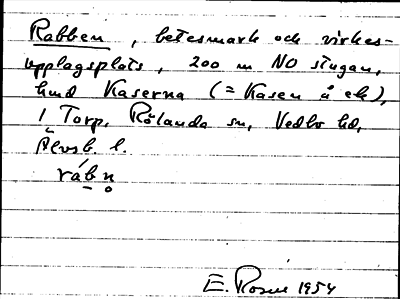 Rabben, betesmark och virkes-
upplagsplats, 200 m NO stugan,
hmd Kaserna (= Kasen å ek),
i Torp, Rölanda sn, Vedbo hd,
Älvsb. l.
rábn̥
E. Rosell 1954